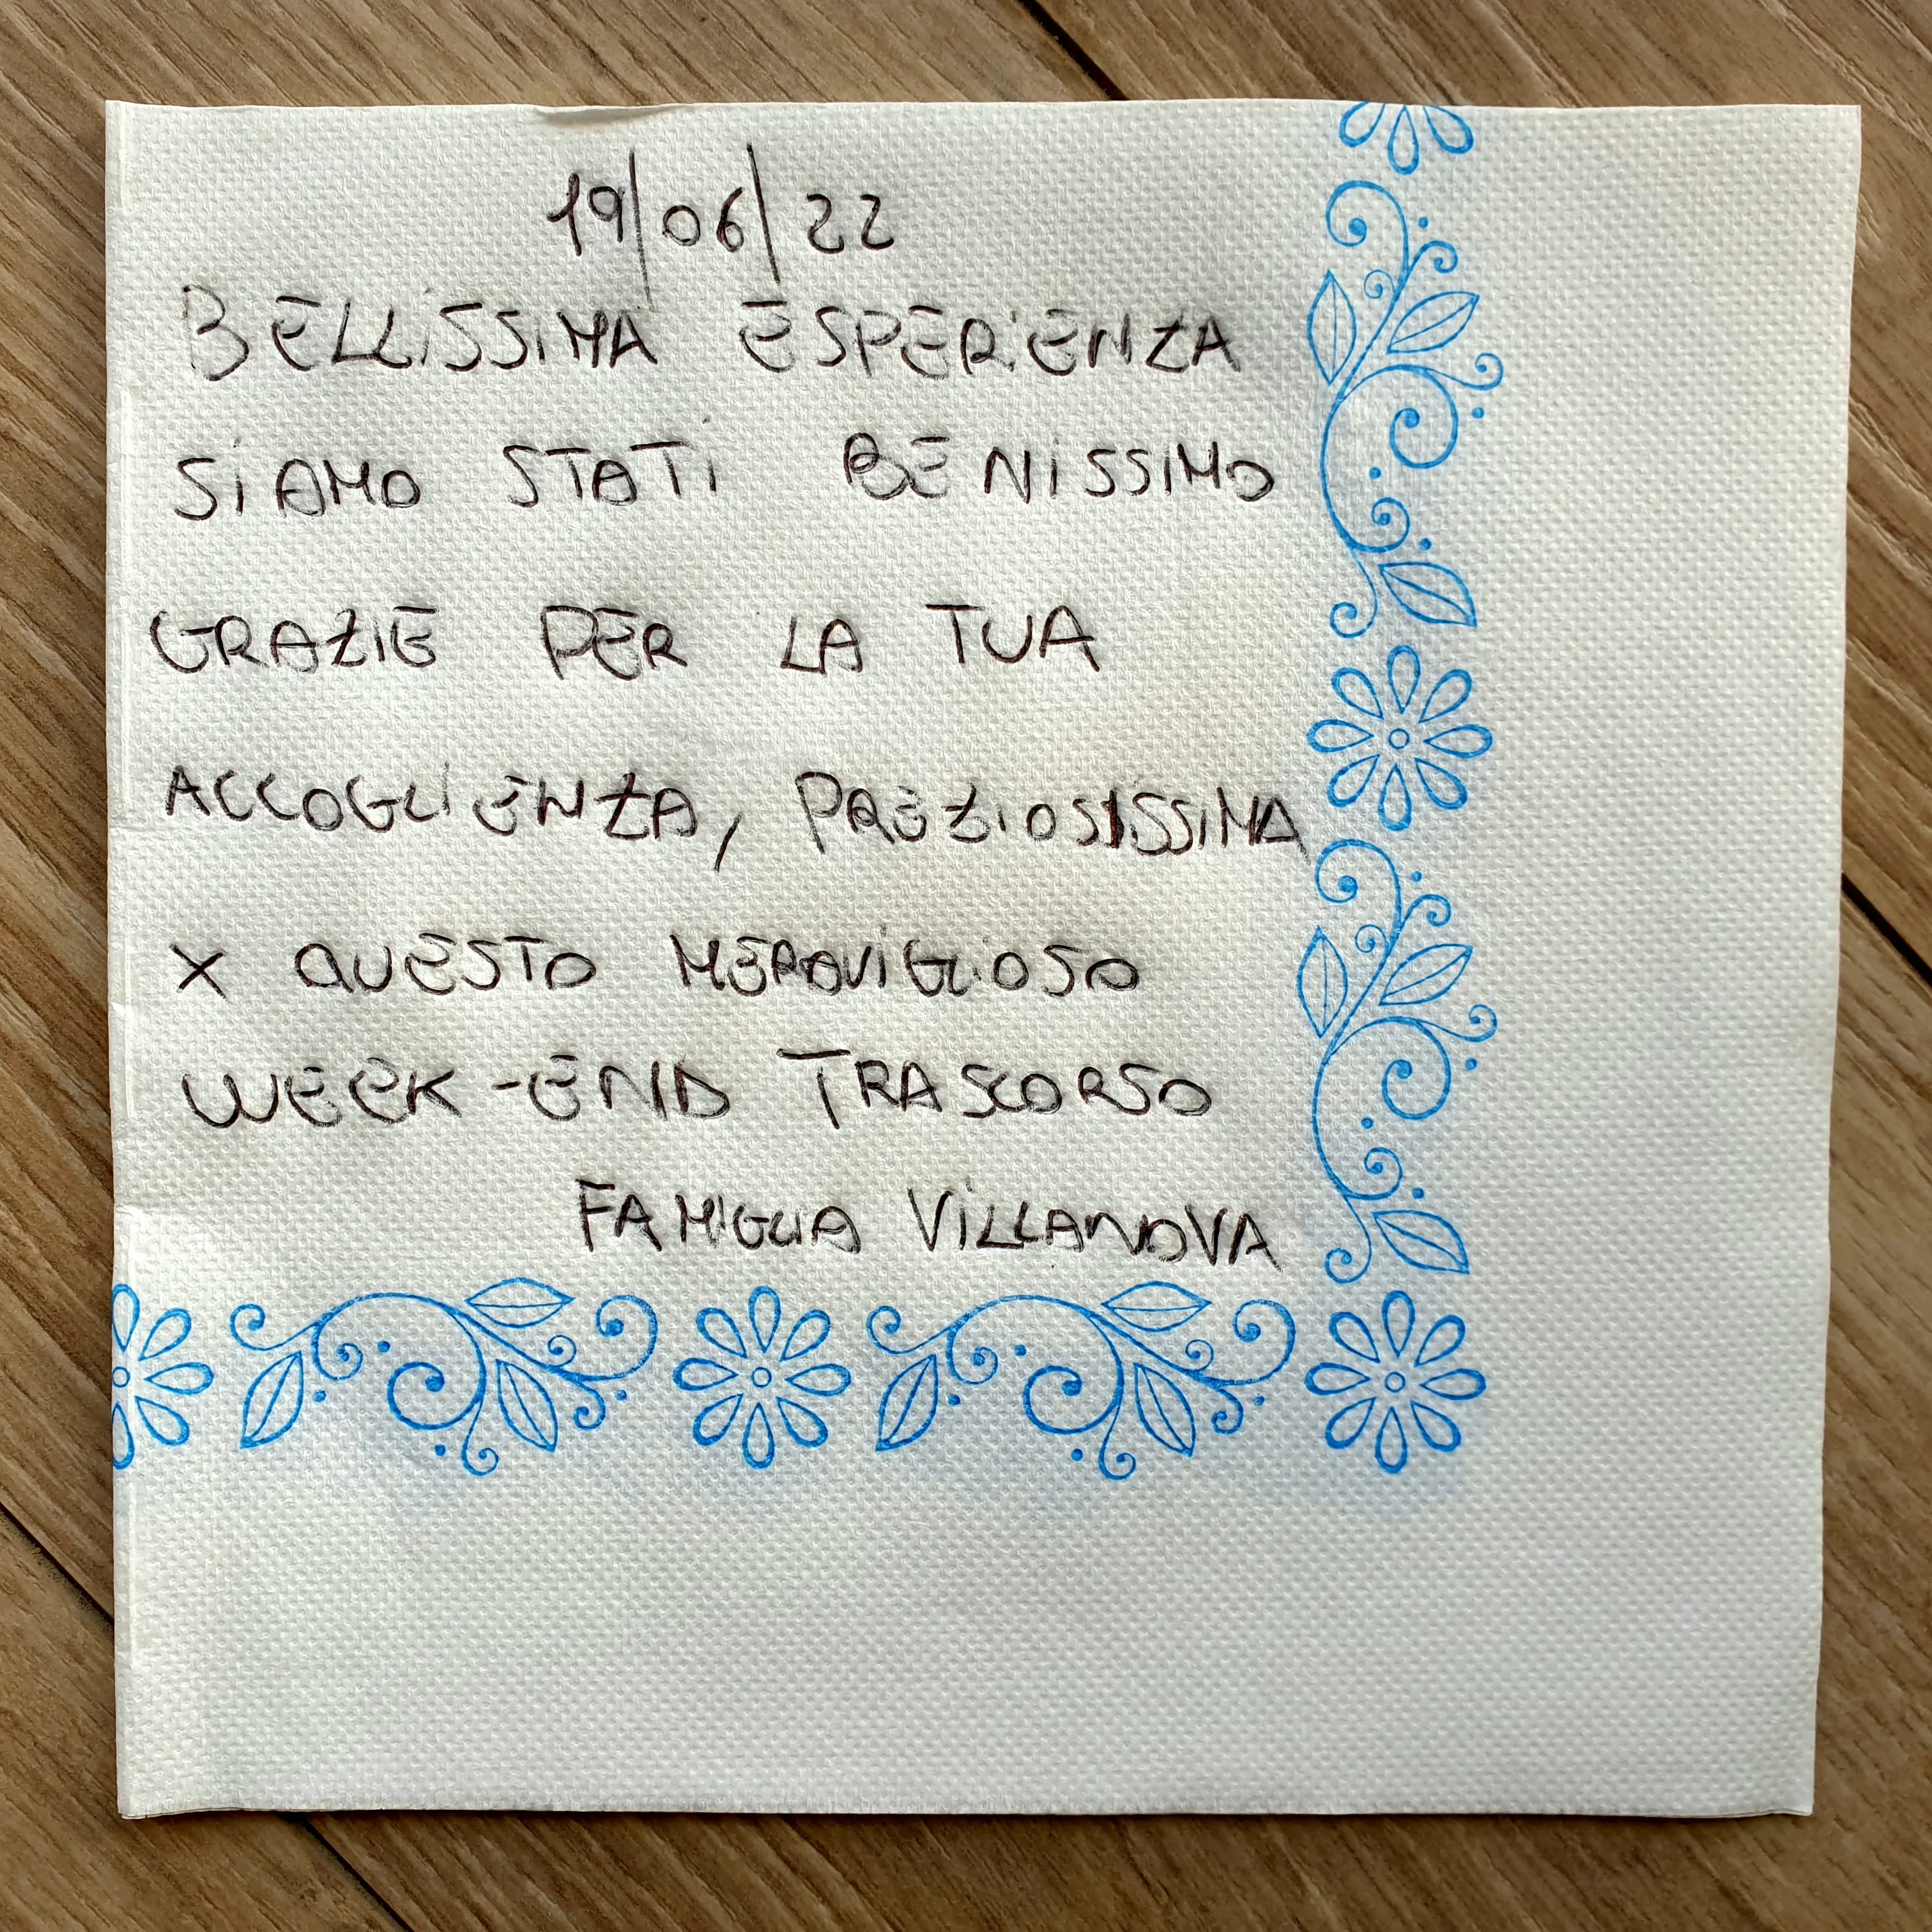 19/06/22
BELLISSIMA ESPERIENZA
SIAMO STATI BENISSIMO
GRAZIE PER LA TUA
ACCOGLIENZA, PREZIOSISSIMA
X QUESTO MERAVIGLIOSO
WEEK-END TRASCORSO
FAMIGLIA VILLANOVA